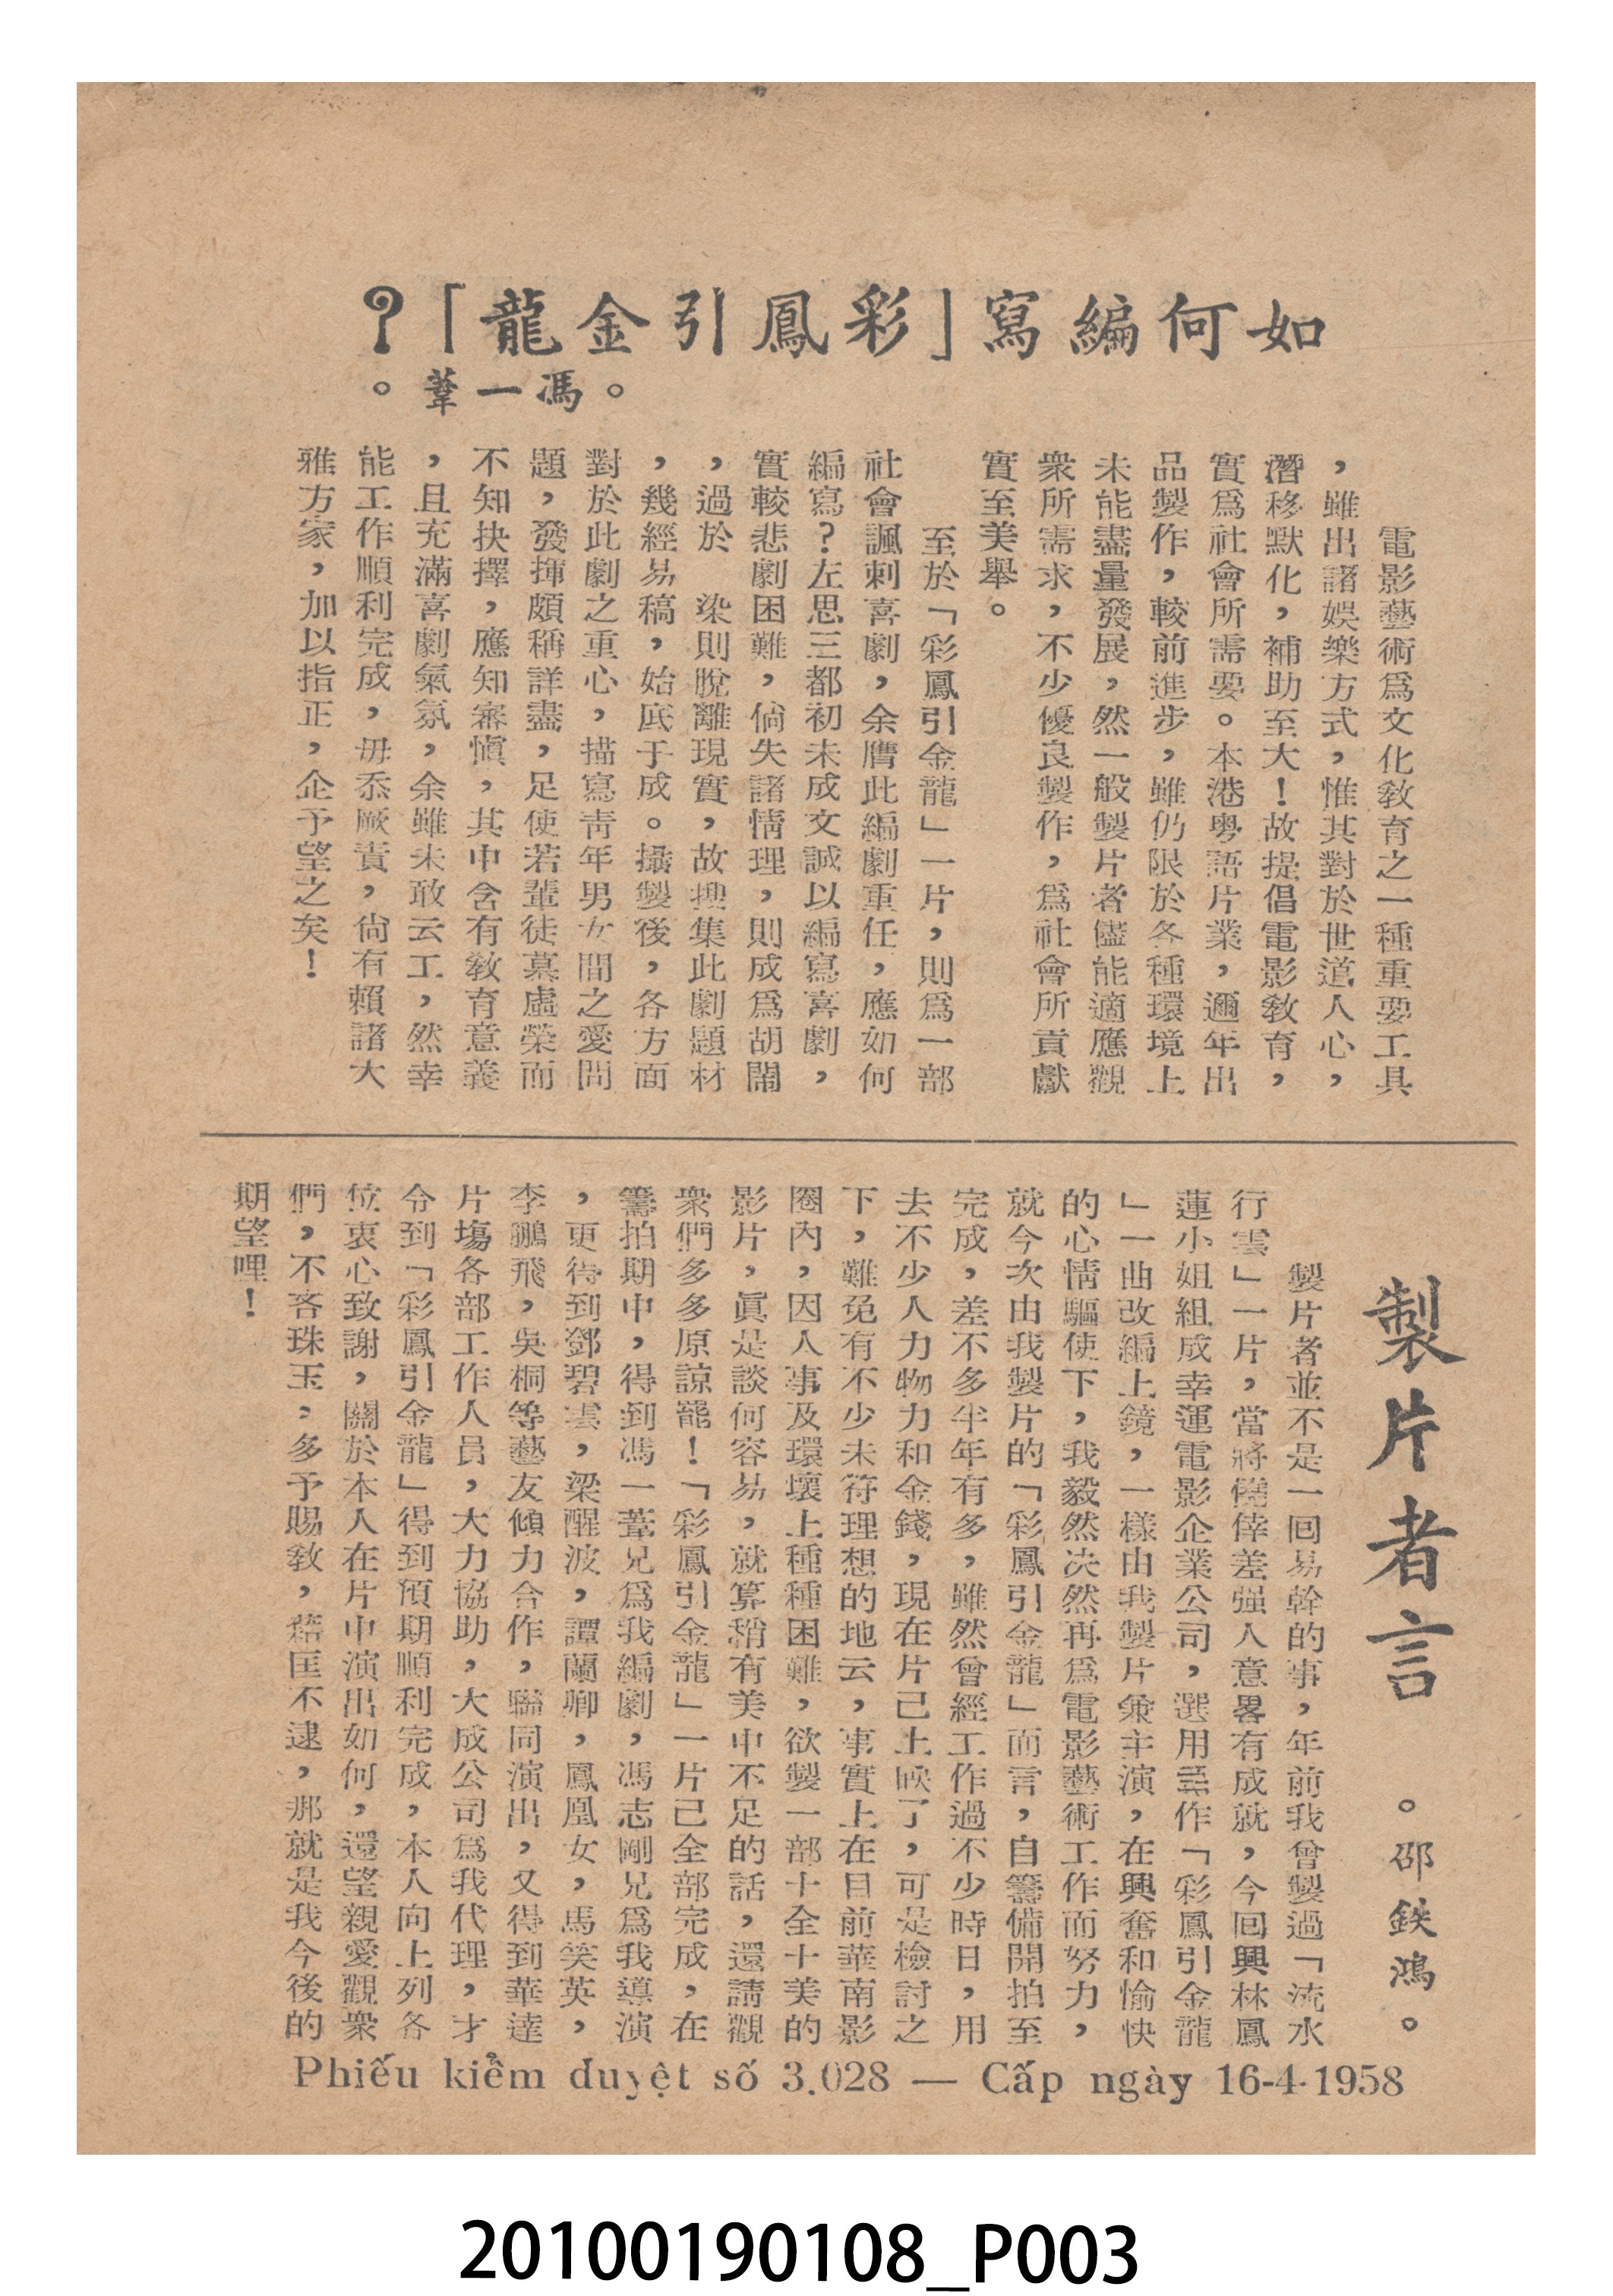 如何編寫「彩鳳引金龍」？
。馮一葦。
電影藝術爲文化教育之一種重要工具
，雖出諸娛樂方式，惟其對於世道人心，
潛移默化，補助至大！故提倡電影教育，
實爲社會所需要。本港粵語片業，邇年出
品製作，較前進步，雖仍限於各種環境上
未能盡量發展，然一般製片者儘能適應觀
衆所需求，不少優良製作，爲社會所貢獻
實至美舉。
至於「彩鳳引金龍」一片，則爲一部
社會諷刺喜劇，余膺此編劇重任，應如何
編寫？左思三都初未成文誠以編寫喜劇，
實較悲劇困難，倘失諸情理，則成爲胡鬧
，過於　染則脫離現實，故搜集此劇題材
，幾經易稿，始底于成。攝製後，各方面
對於此劇之重心，描寫靑年男女間之愛問
題，發揮頗稱詳盡，足使若輩徒慕虛榮而
不知抉擇，應知審愼，其中含有教育意義
，且充滿喜劇氣氛，余雖未敢云工，然幸
能工作順利完成，毋忝厥責，尙有賴諸大
雅方家，加以指正，企予望之矣！
製片者言
。邵鉄鴻。
製片者並不是一回易幹的事，年前我曾製過「流水
行雲」一片，當將僥倖差强人意畧有成就，今回興林鳳
蓮小姐組成幸運電影企業公司，選用作「彩鳳引金龍
」一曲改編上鏡，一樣由我製片兼主演，在興奮和愉快
的心情驅使下，我毅然决然再爲電影藝術工作而努力，
就今次由我製片的「彩鳳引金龍」而言，自籌備開拍至
完成，差不多半年有多，雖然曾經工作過不少時日，用
去不少人力物力和金錢，現在片已上映了，可是檢討之
下，難免有不少未符理想的地云，事實上在目前華南影
圈內，因人事及環壞上種種困難，欲製一部十全十美的
影片，眞是談何容易，就算稍有美中不足的話，還請觀
衆們多多原諒罷！「彩鳳引金龍」一片已全部完成，在
籌拍期中，得到馮一葦兄爲我編劇，馮志剛兄爲我導演
，更待到鄧碧雲，梁醒波，譚蘭卿，鳳凰女，馬笑英，
李鵬飛，吳桐等藝友傾力合作，聯同演出，又得到華達
片塲各部工作人員，大力協助，大成公司爲我代理，才
令到「彩鳳引金龍」得到預期順利完成，本人向上列各
位衷心致謝，關於本人在片中演出如何，還望親愛觀衆
們，不吝珠玉，多予賜敎，藉匡不逮，那就是我今後的
期望哩！
Phiếu kiểm duyệt số 3.028 — Cấp ngày 16-4-1958
20100190108_P003